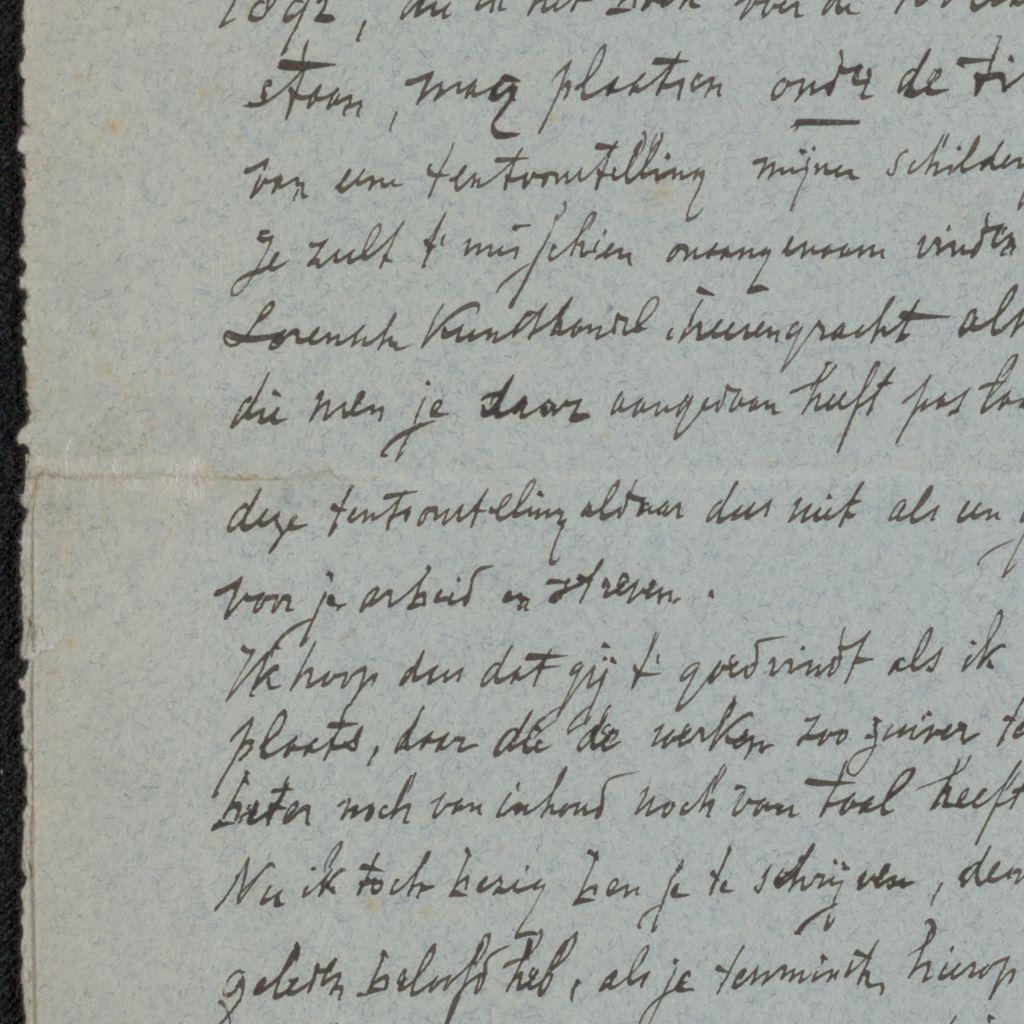 1892, die in het boek voor de
staan, mag plaatsen onder de ti
van eene tentoonstelling mijner schilder
Je zult 't misschien onaangenaam vinden
Kunsthandel Heerengracht als
die men je daar aangedaan heeft pas
deze tentoonstelling aldaar dus niet als een
voor je arbeid en streven.
Ik hoop dus dat gij 't goedvindt als ik
plaats, daar die de werken zoo zuiver te
beter noch van inhoud noch van taal heeft
Nu ik toch bezig ben je te schrijven, den
geleden beloofd heb, als je tenminste hierop